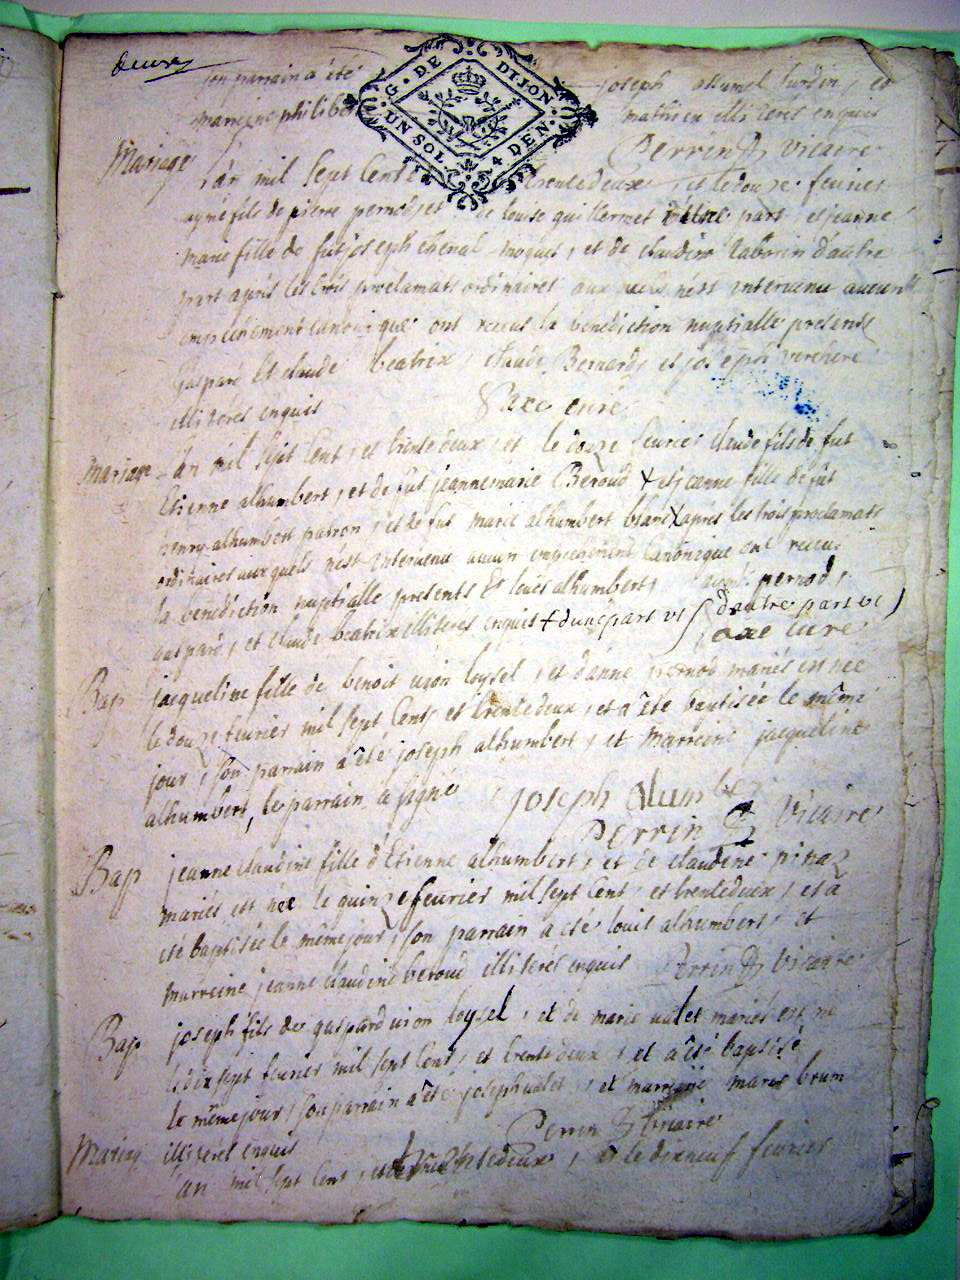 deuxe
son parrain a été joseph alhumbert lurdin, et
marreine philiber mathieu illiterés enquis
G. DE DIJON
UN SOL. 4 DEN.
Perrin Vicaire
Mariage
l'an mil sept Cents trente deux, et le douze fevrier
ayné fils de pierre pernod, et de louise guillermet d'une part, et jeanne
marie fille de fut joseph cheval, et de claudine d'autre
part après les trois proclamats ordinaires aux quels n'est intervenu aucun
empechement canonique ont receus la benediction nuptialle presents
Gaspard et claude beatrix, claude Bernard, et joseph verchere
illiterés enquis
Saxe curé
Mariage
l'an mil sept Cent, et trente deux, et le douze fevrier claude fils de fut
Etienne alhumbert, et de fut jeanne marie Beroud + et jeanne fille de fut
henry alhumbert patron, et de fut marie alhumbert blanc X apres les trois proclamats
ordinaires aux quels n'est intervenu aucun empechement canonique ont receu
la benediction nuptialle presents louis alhumbert, pernod,
gaspard, et claude beatrix illiteres enquis + d'une part d'autre part
Saxe curé
Bap
jacqueline fille de benoit loysel, et d'anne pernod mariés est née
le douze fevrier mil sept Cents et trente deux, et a été baptisée le même
jour, son parrain a été joseph alhumbert, et marreine jacqueline
alhumbert, le parrain a signé joseph alumber
Perrin Vicaire
Bap
jeanne claudine fille d'Etienne alhumbert, et de claudine pinaz
mariés est née le quinze fevrier mil sept Cent, et trente deux, et a
été baptisée le même jour, son parrain a été louis alhumbert et
marreine jeanne claudine beroud illiterés enquis Perrin Vicaire
Bap
joseph fils de gaspard loysel, et de marie valet mariés est né
le dix sept fevrier mil sept Cent, et trente deux, et a été baptisé
le même jour, son parrain a été joseph valet, et marreine marie brun
illiterés enquis Perrin Vicaire
Mariag
l'an mil sept Cent, et trente deux, et le dixneuf fevrier